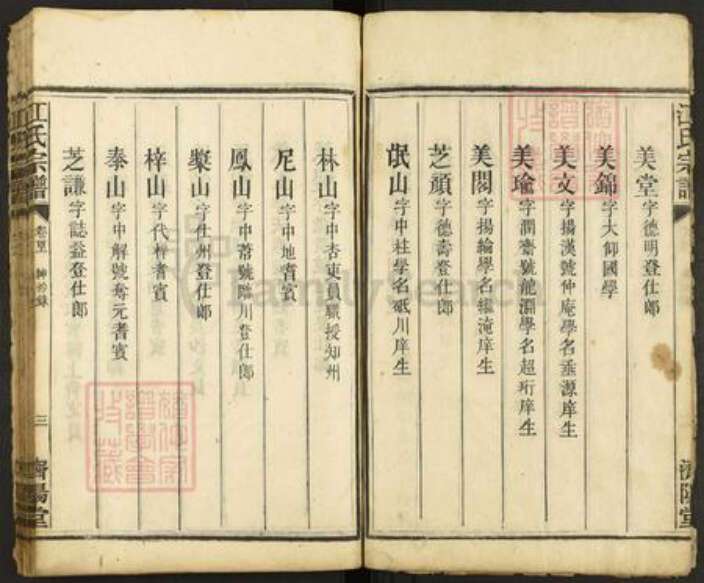 美堂字德明登仕郎
美錦字大卸國學
美文字揚漢號仲庵學名垂源庠生
美瑜字潤齋號龍淵學名超珩庠生
美閣字揚綸學名繼淹庠生
芝頑字德壽登仕郎
岷山字中柱學名砥川庠生
林山字中杏吏員職授知州
尼山字中地耆賓
鳳山字中 號臨川登仕郎
槩山字仕州登仕郎
梓山字代梓耆賓
泰山字中解號奪元耆賓
芝謙字誌益登仕郎
江氏宗譜
卷 紳 錄
三
濟陽堂
江氏宗譜
濟陽堂
FamilySearch